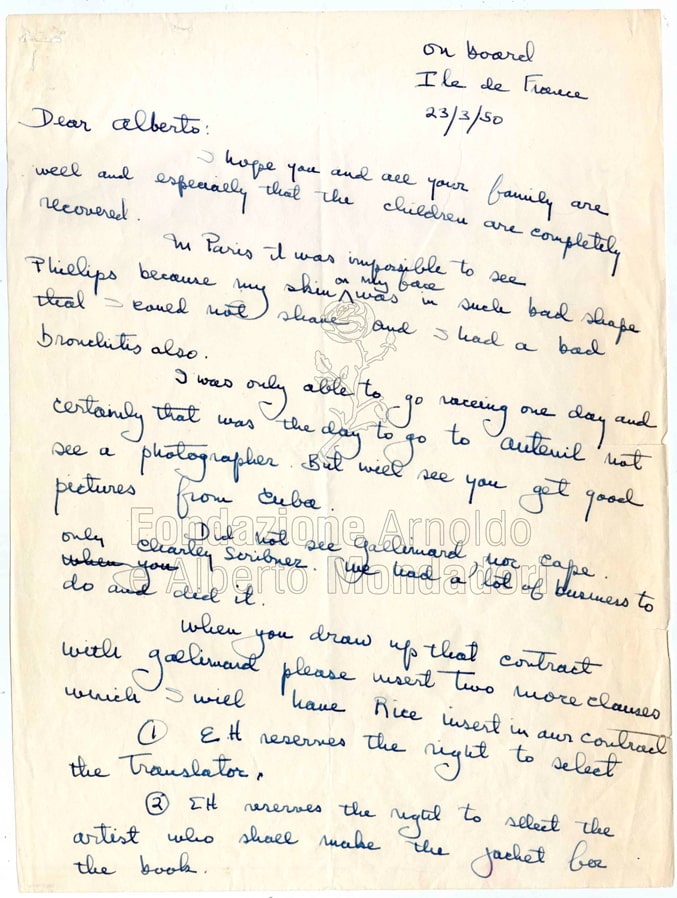 on board
Ile de France
23/3/50
Dear Alberto:
I hope you and all your family are
well and especially that the children are completely
recovered.
In Paris it was impossible to see
on my face
Phillips because my skin ^ was in such bad shape
that I could not shave and I had a bad
bronchitis also.
I was only able to go raceing one day and
certainly that was the day to go to Auteuil not
see a photographer. But will see you get good
pictures from Cuba.
Did not see Gallimard, nor Cape.
only Charley Scribner. We had a lot of business to
when you
do and did it.
When you draw up that contract
with Gallimard please insert two more clauses
which I will have Rice insert in our contract
① EH reserves the right to select
the translator.
② EH reserves the right to select the
artist who shall make the jacket for
the book.
Fondazione Arnoldo
e Alberto Mondadori